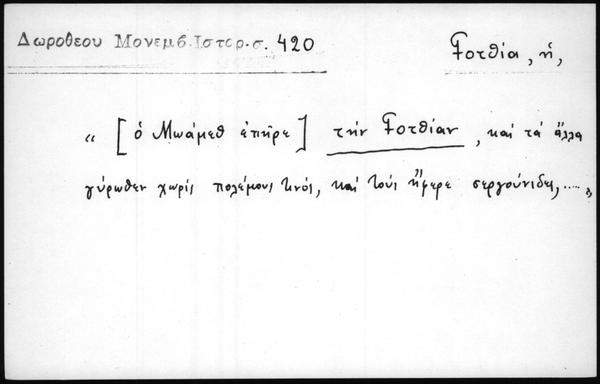 Δωροθεου Μονεμβ.Ιστορ.σ. 420
Γοτθία, ἡ,
“ [ὁ Μωάμεθ ἐπῆρε] τὴν Γοτθίαν, καὶ τὰ ἄλλα
γύρωθεν χωρίς πολέμου τινός, καὶ τούς ἤφερε σεργούνιδες, .... „